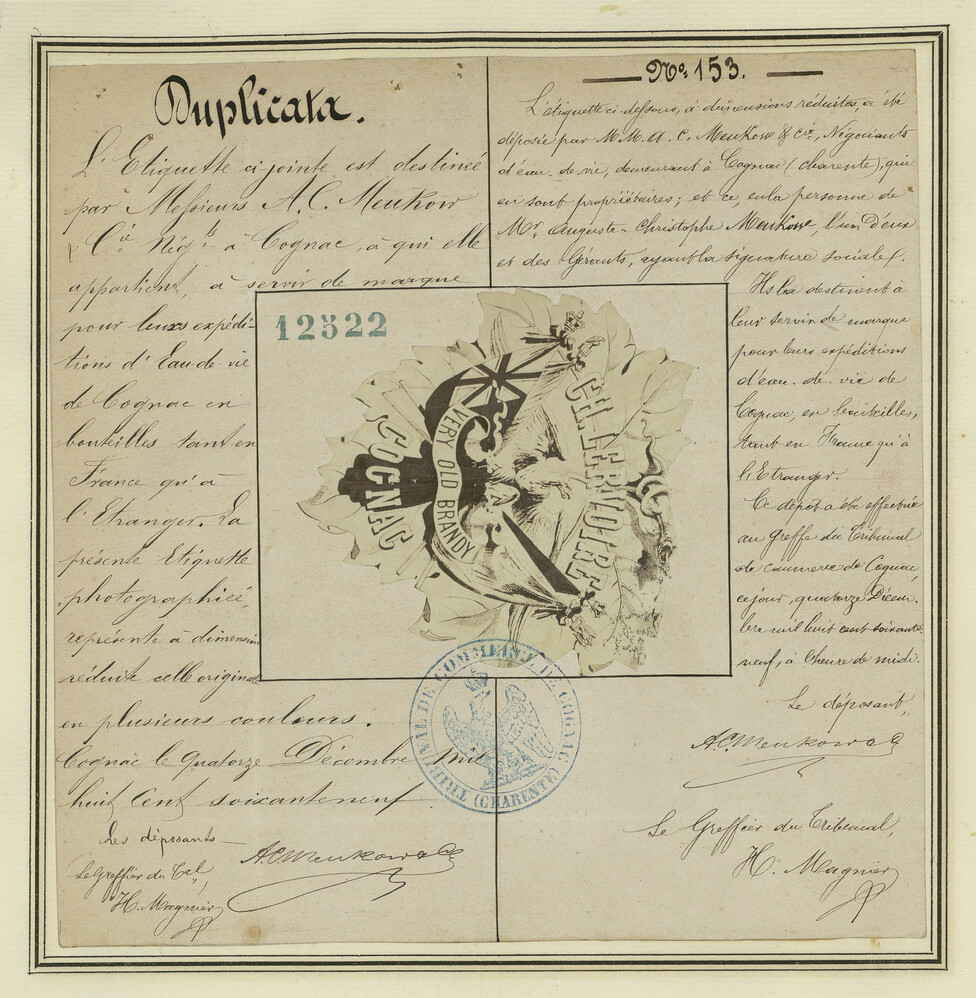 Duplicata.
L'Etiquette ci-jointe est destinée
par Messieurs A.C. Meukow
& Cie Négts à Cognac, à qui elle
appartient, à servir de marque
pour leurs expédi-
tions d'Eau-de-vie
de Cognac en
bouteilles tant en
France qu'à
l'Etranger. La
présente Etiquette
photographiée,
représente à dimension
réduite celle originale
en plusieurs couleurs.
Cognac le quatorze Décembre mil
huit cent soixante neuf
Les déposants
Le Greffier du Tal,
H. Magnier
A.C. Meukow & Co
No. 153.
L'étiquette ci-dessous, à dimensions réduites, a été
déposée par M.M. A. C. Meukow & Cie, Négociants
d'eau-de-vie, demeurant à Cognac (charente), qui
en sont propriétaires; et ce, en la personne de
Mr. Auguste-Christophe Meukow, l'un d'eux
et des Gérants, ayant la signature sociale.
Ils la destinent à
leur servir de marque
pour leurs expéditions
d'eau-de-vie de
Cognac, en bouteilles,
tant en France qu'à
l'Etranger.
Ce dépôt a été effectué
au greffe du Tribunal
de commerce de Cognac,
ce jour, quatorze Décem-
bre mil huit cent soixante
neuf, à l'heure de midi.
Le déposant,
A.C. Meukow & Co
Le Greffier du Tribunal,
H. Magnier
12522
COGNAC
VERY OLD BRANDY
CH. LERVOIRE
TRIBUNAL DE COMMERCE DE COGNAC
(CHARENTE)